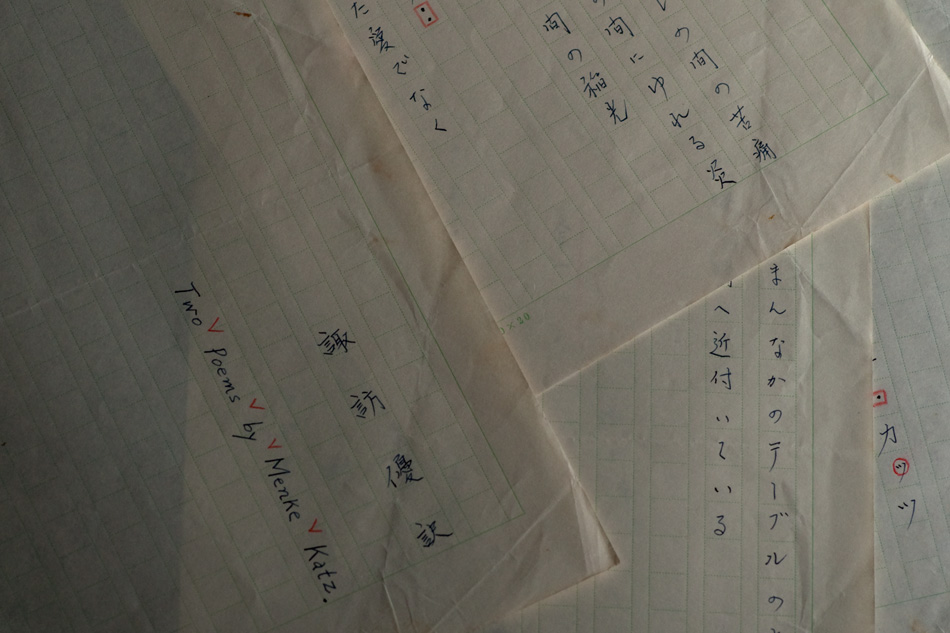 の間の苦痛
の間にゆれる炎
間の稲光
でなく
×20
諏訪優訳
Two Poems by Menke Katz.
カッツ
まんなかのテーブルの
へ近付いている